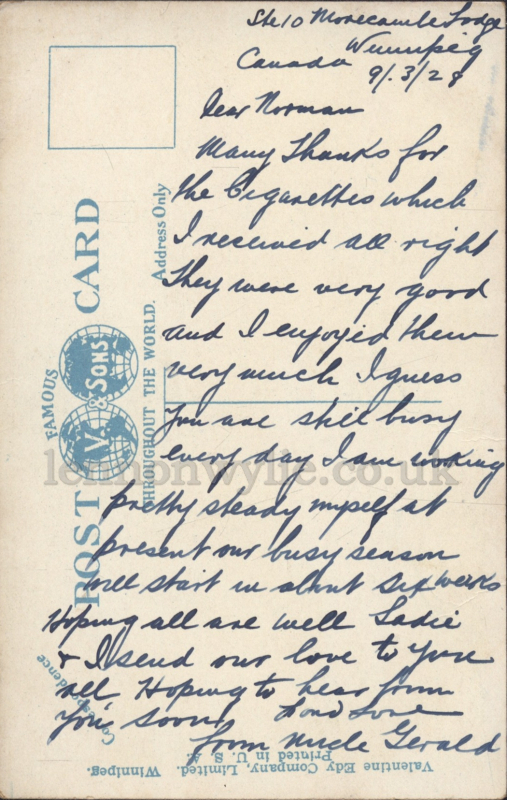 Ste 10 Morecambe Lodge
Winnipeg
Canada
9/.3/28
Dear Norman
Many Thanks for
the Cigarettes which
I received all right
They were very good
and I enjoyed them
very much I guess
you are still busy
every day I am working
pretty steady myself at
present our busy season
will start in about six weeks
Hoping all are well Sadie
& I send our love to you
all Hoping to hear from
you soon Fond Love
from uncle Gerald
POST CARD
FAMOUS
V. & SONS
THROUGHOUT THE WORLD.
Address Only
Correspondence
Valentine Edy Company, Limited. Winnipeg.
Printed in U. S. A.
lennonwylie.co.uk